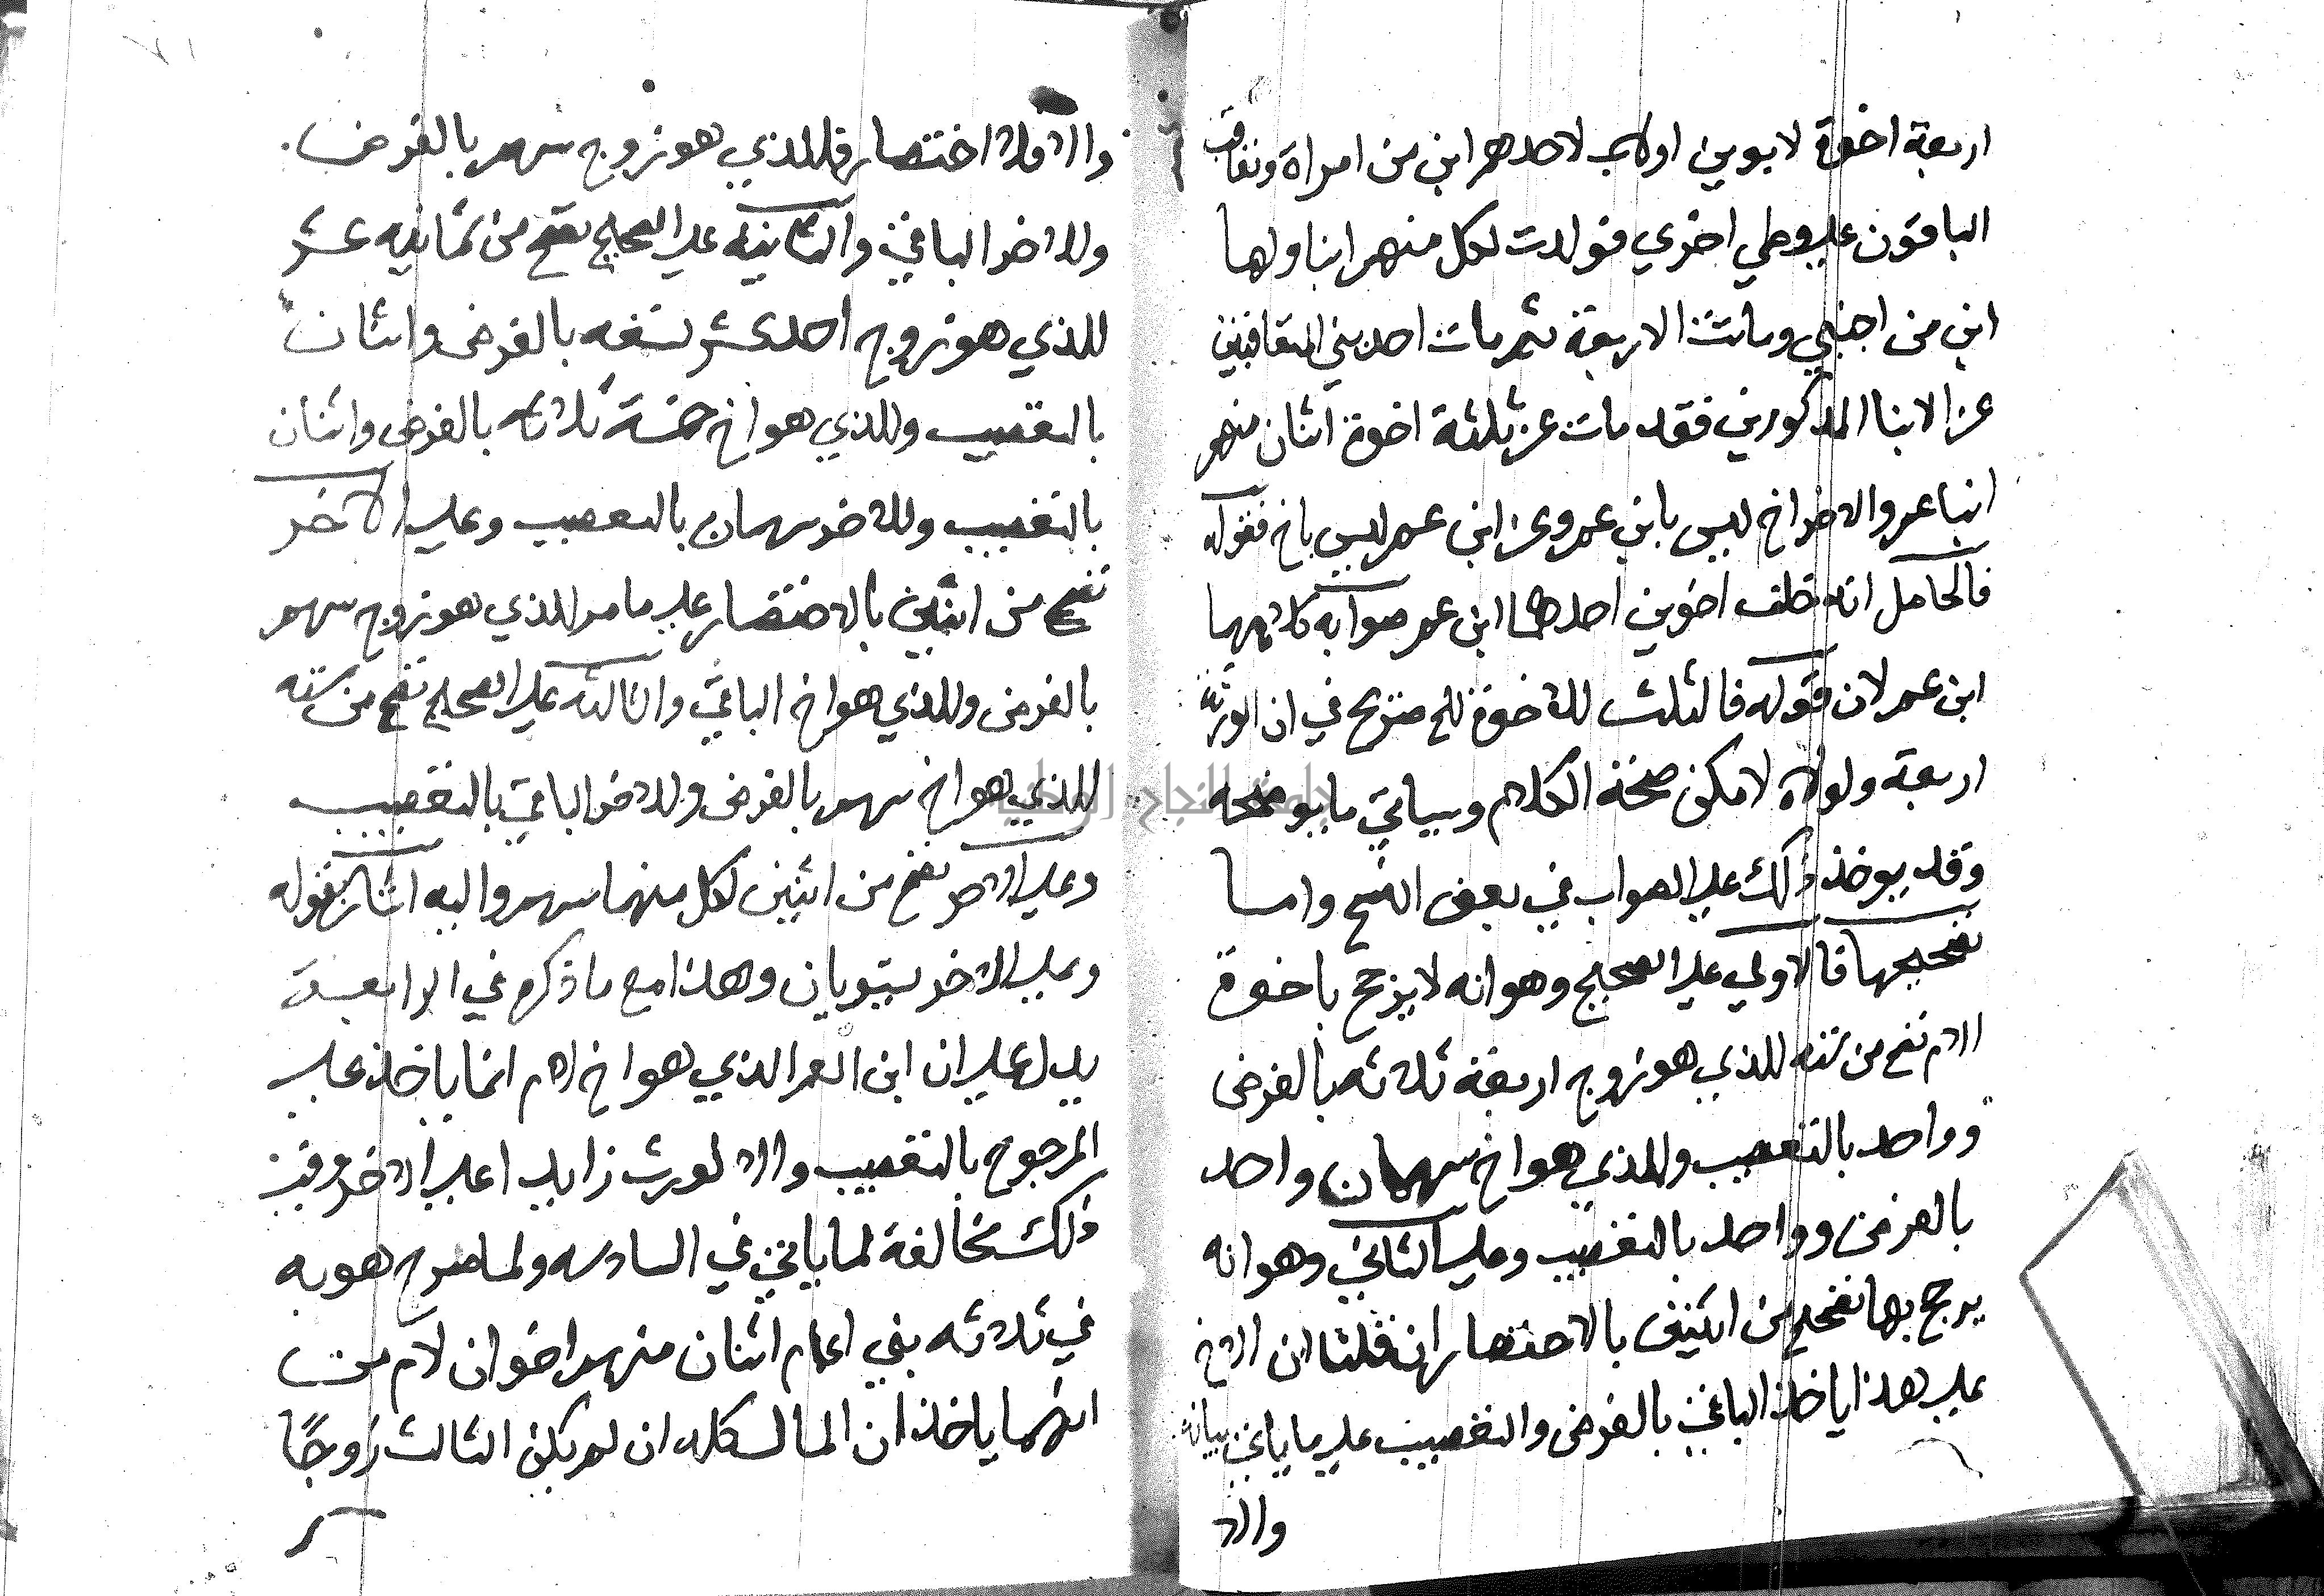 اربعة اخوة لابوين اولاب لاحدهم ابن من امراة وتعاقب
الباقون على وطي اخري فولدت لكل منهم ابنا ولها
ابن من اجنبي وماتت الاربعة ثم مات احد بني المتعاقبين
عن الابنا المذكورين فقد مات عن ثلثة اخوة اثنان منهم
ابنا عم والاخر اخ ليس بابن عم وعن ابن عم ليس باخ فقوله
فالحاصل انه خلف اخوين احدهما ابن عم صوابه كلاهما
ابن عم لان قوله فالثلث للاخوة الخ صريح في ان الورثة
اربعة ولولاه لامكن صحة الكلام وسياتي ما يوضحه
وقد يوخذ ذلك على الصواب في بعض النسخ واما
تصحيحها فالاولي على الصحيح وهو انه لا يرجح باخوة
الام تصح من ستة للذي هو زوج اربعة ثلاثه بالفرض
وواحد بالتعصيب وللذي هو اخ سهمان واحد
بالفرض وواحد بالتعصيب وعلى الثاني وهو انه
يرجح بها تصح من اثنين بالاختصار ان قلنا ان الاخ
على هذا ياخذ الباقي بالفرض والتعصيب على ما ياتي بيانه
والا
٧١
والا فلا اختصار فللذي هو زوج سهم بالفرض
وللاخر الباقي والثانية على الصحيح تصح من ثمانيه عشر
للذي هو زوج احد عشر تسعه بالفرض واثنان
بالتعصيب وللذي هو اخ خمسة ثلاثه بالفرض واثنان
بالتعصيب وللاخر سهمان بالتعصيب وعلى الاخر
تصح من اثنين بالاختصار على ما مر للذي هو زوج سهم
بالفرض وللذي هو اخ الباقي والثالثه على الصحيح تصح من سته
للذي هو اخ سهم بالفرض وللاخر الباقي بالتعصيب
وعلى الاخر تصح من اثنين لكل منهما سهم واليه اشار بقوله
وعلى الاخر يستويان وهذا مع ما ذكره في الرابعة
يدل على ان ابن العم الذي هو اخ لام انما ياخذ على
المرجوح بالتعصيب والا لورث زايدا على الاخر وفي
ذلك مخالفة لما ياتي في السادسه ولما صرح هو به
في ثلاثه بني اعمام اثنان منهم اخوان لام من
انهما ياخذان المال كله ان لم يكن الثالث زوجًا